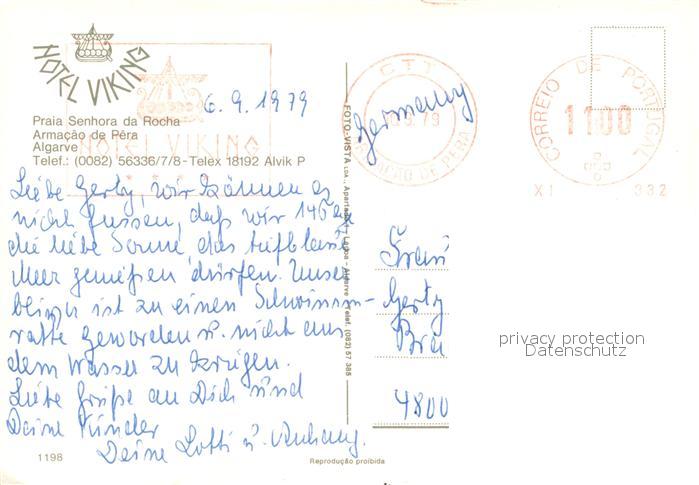 HOTEL VIKING
Praia Senhora da Rocha
Armação de Pêra
Algarve
Telef.: (0082) 56336/7/8 - Telex 18192 Alvik P
HOTEL VIKING
6.9.1979
Liebe Gerty, wir können es
nicht fassen, daß wir 14
die liebe Sonne, das tiefblaue
Meer genießen dürfen. Unser
ist zu einen Schwimm-
ratte geworden u. nicht aus
dem Wasser zu kriegen.
Liebe Grüße an Dich und
Deine Kinder
Deine Lotti u. Anhang.
1198
FOTO-VISTA LDA., Apartado Lagoa - Algarve Telef. (082) 57 386
Reprodução proibida
Germany
CTT
9.79
ARMAÇÃO DE PERA
CORREIO DE PORTUGAL
1100
XI 332
Frau
Gerty
4800
privacy protection
Datenschutz